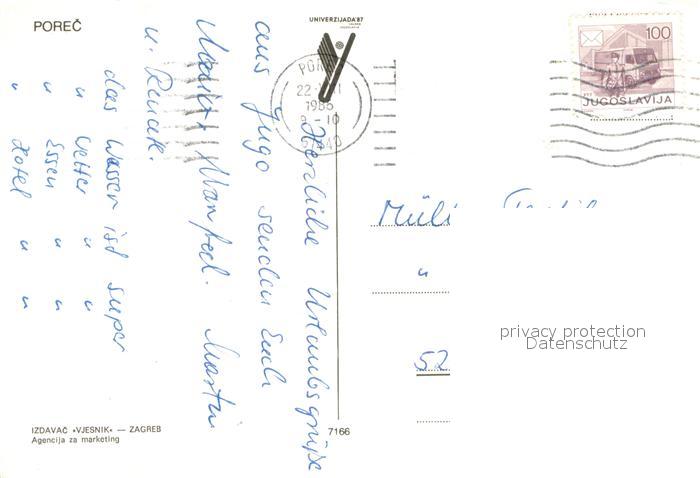 POREČ
UNIVERZIJADA'87
ZAGREB
JUGOSLAVIJA
22
1986
9-10
100
JUGOSLAVIJA
Herzliche Urlaubsgrüße
aus Jugo senden Euch
Manfred. Martin
u. Renate.
das Wasser ist super
" Wetter " "
" Essen " "
" Hotel " "
Müll
"
52
privacy protection
Datenschutz
IZDAVAČ »VJESNIK« — ZAGREB
Agencija za marketing
7166